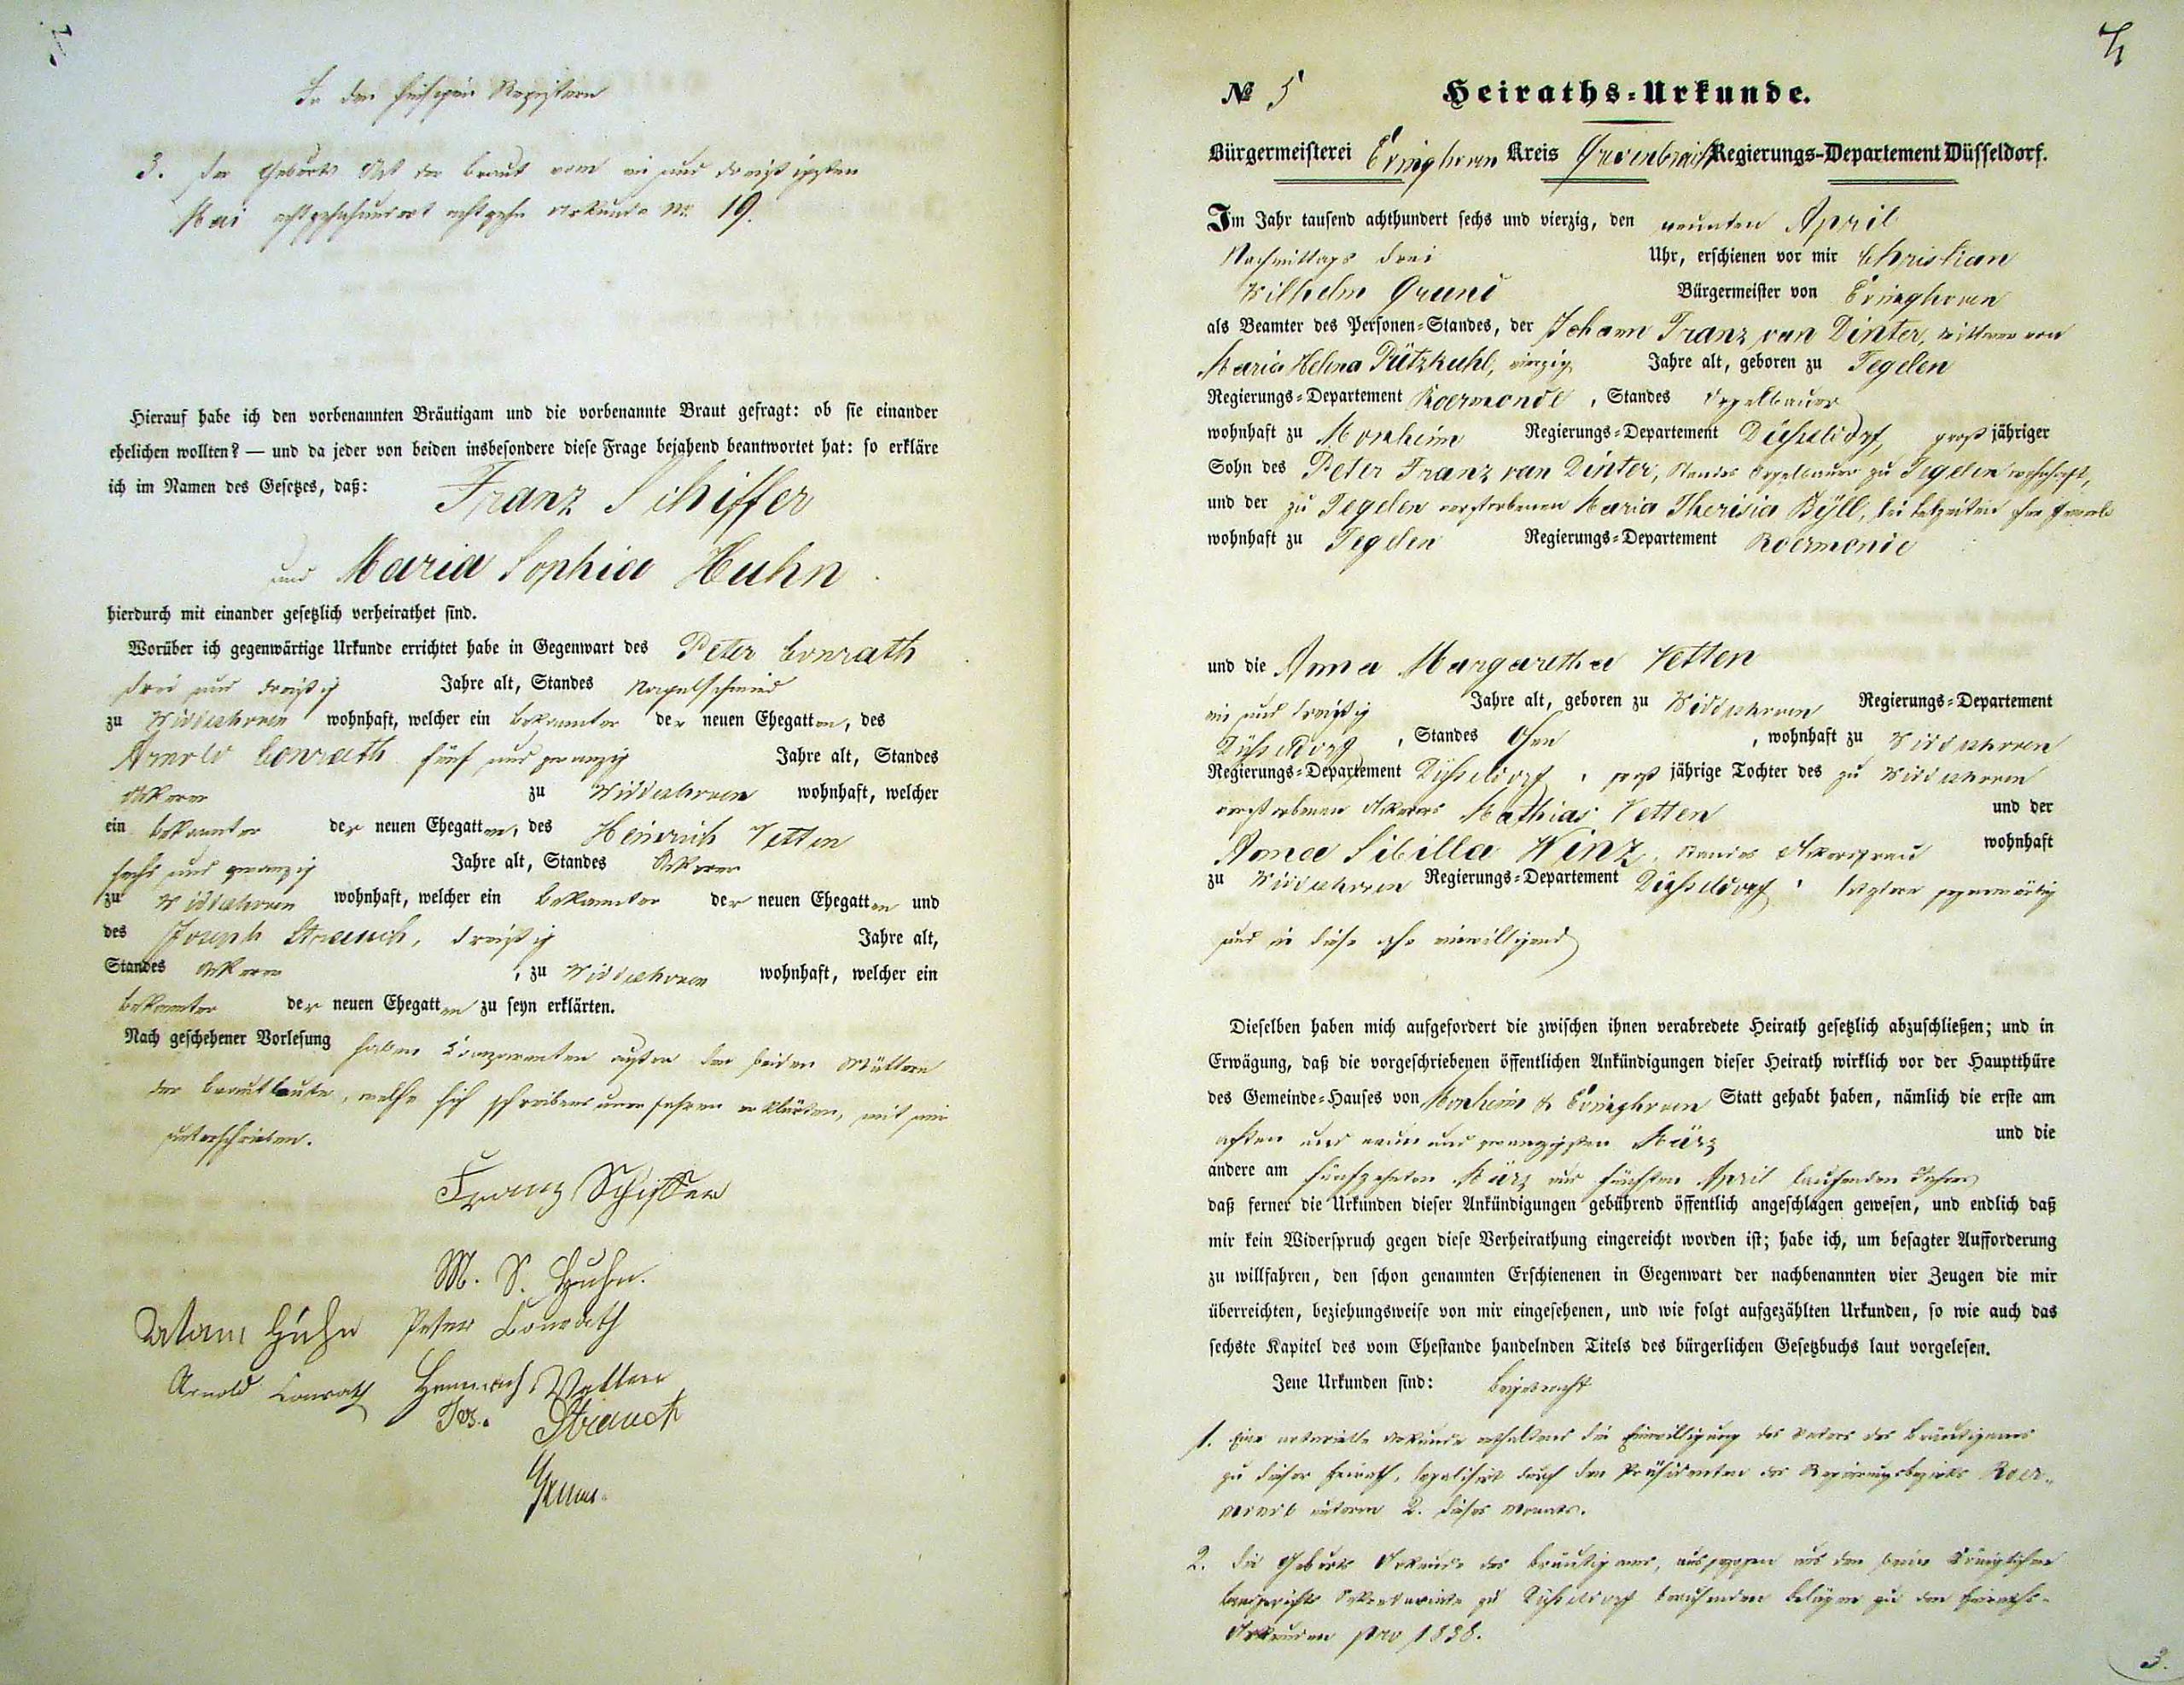 In den hiesigen Registern
3. Der Geburts Akt der Braut vom ein und dreißigsten
Mai achtzehnhundert achtzehn Urkunde Nr. 19.
Hierauf habe ich den vorbenannten Bräutigam und die vorbenannte Braut gefragt: ob sie einander
ehelichen wollten? — und da jeder von beiden insbesondere diese Frage bejahend beantwortet hat: so erkläre
ich im Namen des Gesetzes, daß: Franz Schiffer
und Maria Sophia Huhn
hierdurch mit einander gesetzlich verheirathet sind.
Worüber ich gegenwärtige Urkunde errichtet habe in Gegenwart des Peter Conrath
drei und dreißig Jahre alt, Standes Nagelschmied
zu Widdeshoven wohnhaft, welcher ein Bekannter der neuen Ehegatten, des
Arnold Conrath fünf und zwanzig Jahre alt, Standes
Ackerer zu Widdeshoven wohnhaft, welcher
ein Bekannter der neuen Ehegatten, des Heinrich Vetten
sechs und zwanzig Jahre alt, Standes Ackerer
zu Widdeshoven wohnhaft, welcher ein Bekannter der neuen Ehegatten und
des Joseph Strauch, dreißig Jahre alt,
Standes Ackerer, zu Widdeshoven wohnhaft, welcher ein
Bekannter der neuen Ehegatten zu seyn erklärten.
Nach geschehener Vorlesung haben Comparenten außer den beiden Müttern
der Brautleute, welche sich schreibens unerfahren erklärten, mit mir
unterschrieben.
Franz Schiffer
M. S. Huhn.
Adam Huhn Peter Conrath
Arnold Conrath Heinrich Vetten
Jos. Strauch
Grund
4
№ 5 Heiraths-Urkunde.
Bürgermeisterei Evinghoven Kreis Grevenbroich Regierungs-Departement Düsseldorf.
Im Jahr tausend achthundert sechs und vierzig, den neunten April
Nachmittags drei Uhr, erschienen vor mir Christian
Wilhelm Grund Bürgermeister von Evinghoven
als Beamter des Personen-Standes, der Johann Franz van Dinter, Wittwer von
Maria Helena Pützkuhl, vierzig Jahre alt, geboren zu Tegelen
Regierungs-Departement Roermonde, Standes Orgelbauer
wohnhaft zu Monheim Regierungs-Departement Düsseldorf, groß jähriger
Sohn des Peter Franz van Dinter, Standes Orgelbauer zu Tegelen wohnhaft,
und der zu Tegelen verstorbenen Maria Theresia Byll, bei Lebzeiten
wohnhaft zu Tegelen Regierungs-Departement Roermonde
und die Anna Margaretha Vetten
ein und dreißig Jahre alt, geboren zu Widdeshoven Regierungs-Departement
Düsseldorf, Standes Ohne, wohnhaft zu Widdeshoven
Regierungs-Departement Düsseldorf, groß jährige Tochter des zu Widdeshoven
verstorbenen Ackerers Mathias Vetten und der
Anna Sibilla Winz, Standes Ackersfrau wohnhaft
zu Widdeshoven Regierungs-Departement Düsseldorf, letztere gegenwärtig
und in diese Ehe einwilligend
Dieselben haben mich aufgefordert die zwischen ihnen verabredete Heirath gesetzlich abzuschließen; und in
Erwägung, daß die vorgeschriebenen öffentlichen Ankündigungen dieser Heirath wirklich vor der Hauptthüre
des Gemeinde-Hauses von Monheim & Evinghoven Statt gehabt haben, nämlich die erste am
achten und neun und zwanzigsten März und die
andere am fünfzehnten März und fünften April laufenden Jahres
daß ferner die Urkunden dieser Ankündigungen gebührend öffentlich angeschlagen gewesen, und endlich daß
mir kein Widerspruch gegen diese Verheirathung eingereicht worden ist; habe ich, um besagter Aufforderung
zu willfahren, den schon genannten Erschienenen in Gegenwart der nachbenannten vier Zeugen die mir
überreichten, beziehungsweise von mir eingesehenen, und wie folgt aufgezählten Urkunden, so wie auch das
sechste Kapitel des vom Ehestande handelnden Titels des bürgerlichen Gesetzbuchs laut vorgelesen.
Jene Urkunden sind: beigebracht
1. Eine notarielle Urkunde enthaltend die Einwilligung des Vaters des Bräutigams
zu dieser Heirath, legalisirt durch den Präsidenten des Regierungsbezirks Roer-
monde unterm 2. dieses Monats.
2. Die Geburts Urkunde des Bräutigams, ausgezogen aus den beim Königlichen
Landgerichts Sekretariate zu Düsseldorf beruhenden Belägen zu den Heiraths-
Urkunden pro 1838.
3.